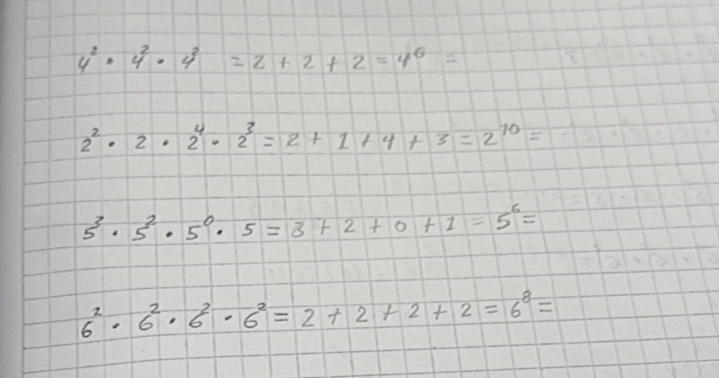 4² · 4² · 4² = 2 + 2 + 2 = 4⁶ =
2² · 2 · 2⁴ · 2³ = 2 + 1 + 4 + 3 = 2¹⁰ =
5³ · 5² · 5⁰ · 5 = 3 + 2 + 0 + 1 = 5⁶ =
6² · 6² · 6² · 6² = 2 + 2 + 2 + 2 = 6⁸ =